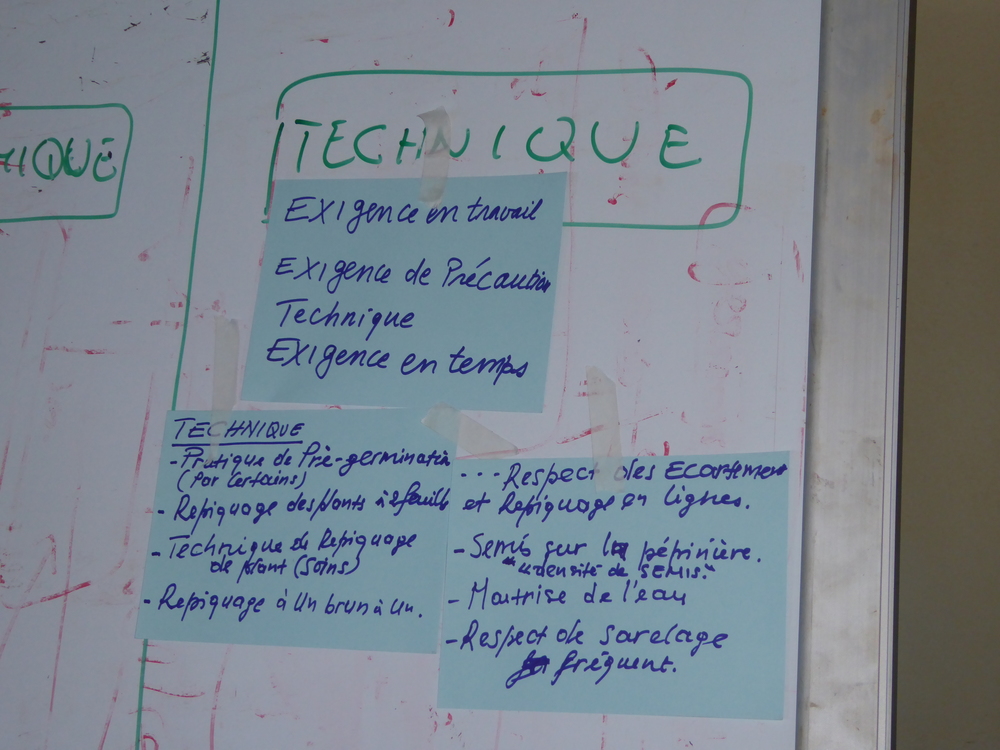 IQUE
TECHNIQUE
EXIgence en travail
EXIgence de Précaution
Technique
EXIgence en temps
TECHNIQUE
- Pratique de Pré-germination
(Par Certains)
- Repiquage des plants à 2 feuilles
- Technique de Repiquage
de plant (Soins)
- Repiquage à Un brun à Un.
... Respect des Ecartement
et Repiquage en lignes.
- Semis sur la pépinière.
"densité de SEMIS."
- Maitrise de l'eau
- Respect de sarclage
fréquent.